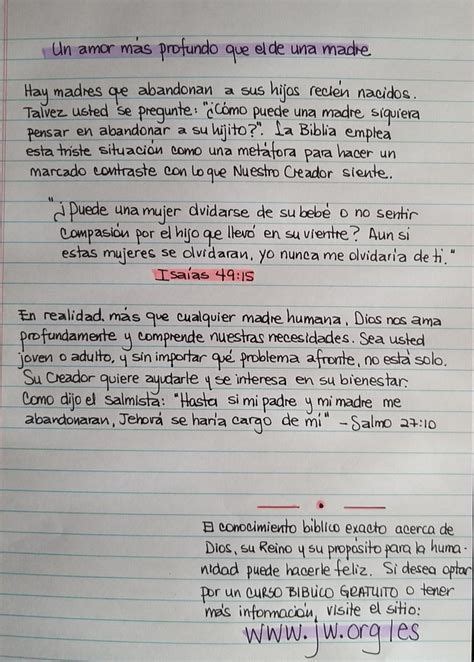 Un amor más profundo que el de una madre
Hay madres que abandonan a sus hijos recién nacidos.
Talvez usted se pregunte: "¿Cómo puede una madre siquiera
pensar en abandonar a su hijito?". La Biblia emplea
esta triste situación como una metáfora para hacer un
marcado contraste con lo que Nuestro Creador siente.
"¿Puede una mujer olvidarse de su bebé o no sentir
compasión por el hijo que llevó en su vientre? Aun si
estas mujeres se olvidaran, yo nunca me olvidaría de ti."
Isaías 49:15
En realidad, más que cualquier madre humana, Dios nos ama
profundamente y comprende nuestras necesidades. Sea usted
joven o adulto, y sin importar qué problema afronte, no está solo.
Su Creador quiere ayudarle y se interesa en su bienestar.
Como dijo el salmista: "Hasta si mi padre y mi madre me
abandonaran, Jehová se haría cargo de mí" - Salmo 27:10
El conocimiento bíblico exacto acerca de
Dios, su Reino y su propósito para la huma-
nidad puede hacerle feliz. Si desea optar
por un CURSO BIBLICO GRATUITO o tener
más información, visite el sitio:
www.jw.org/es